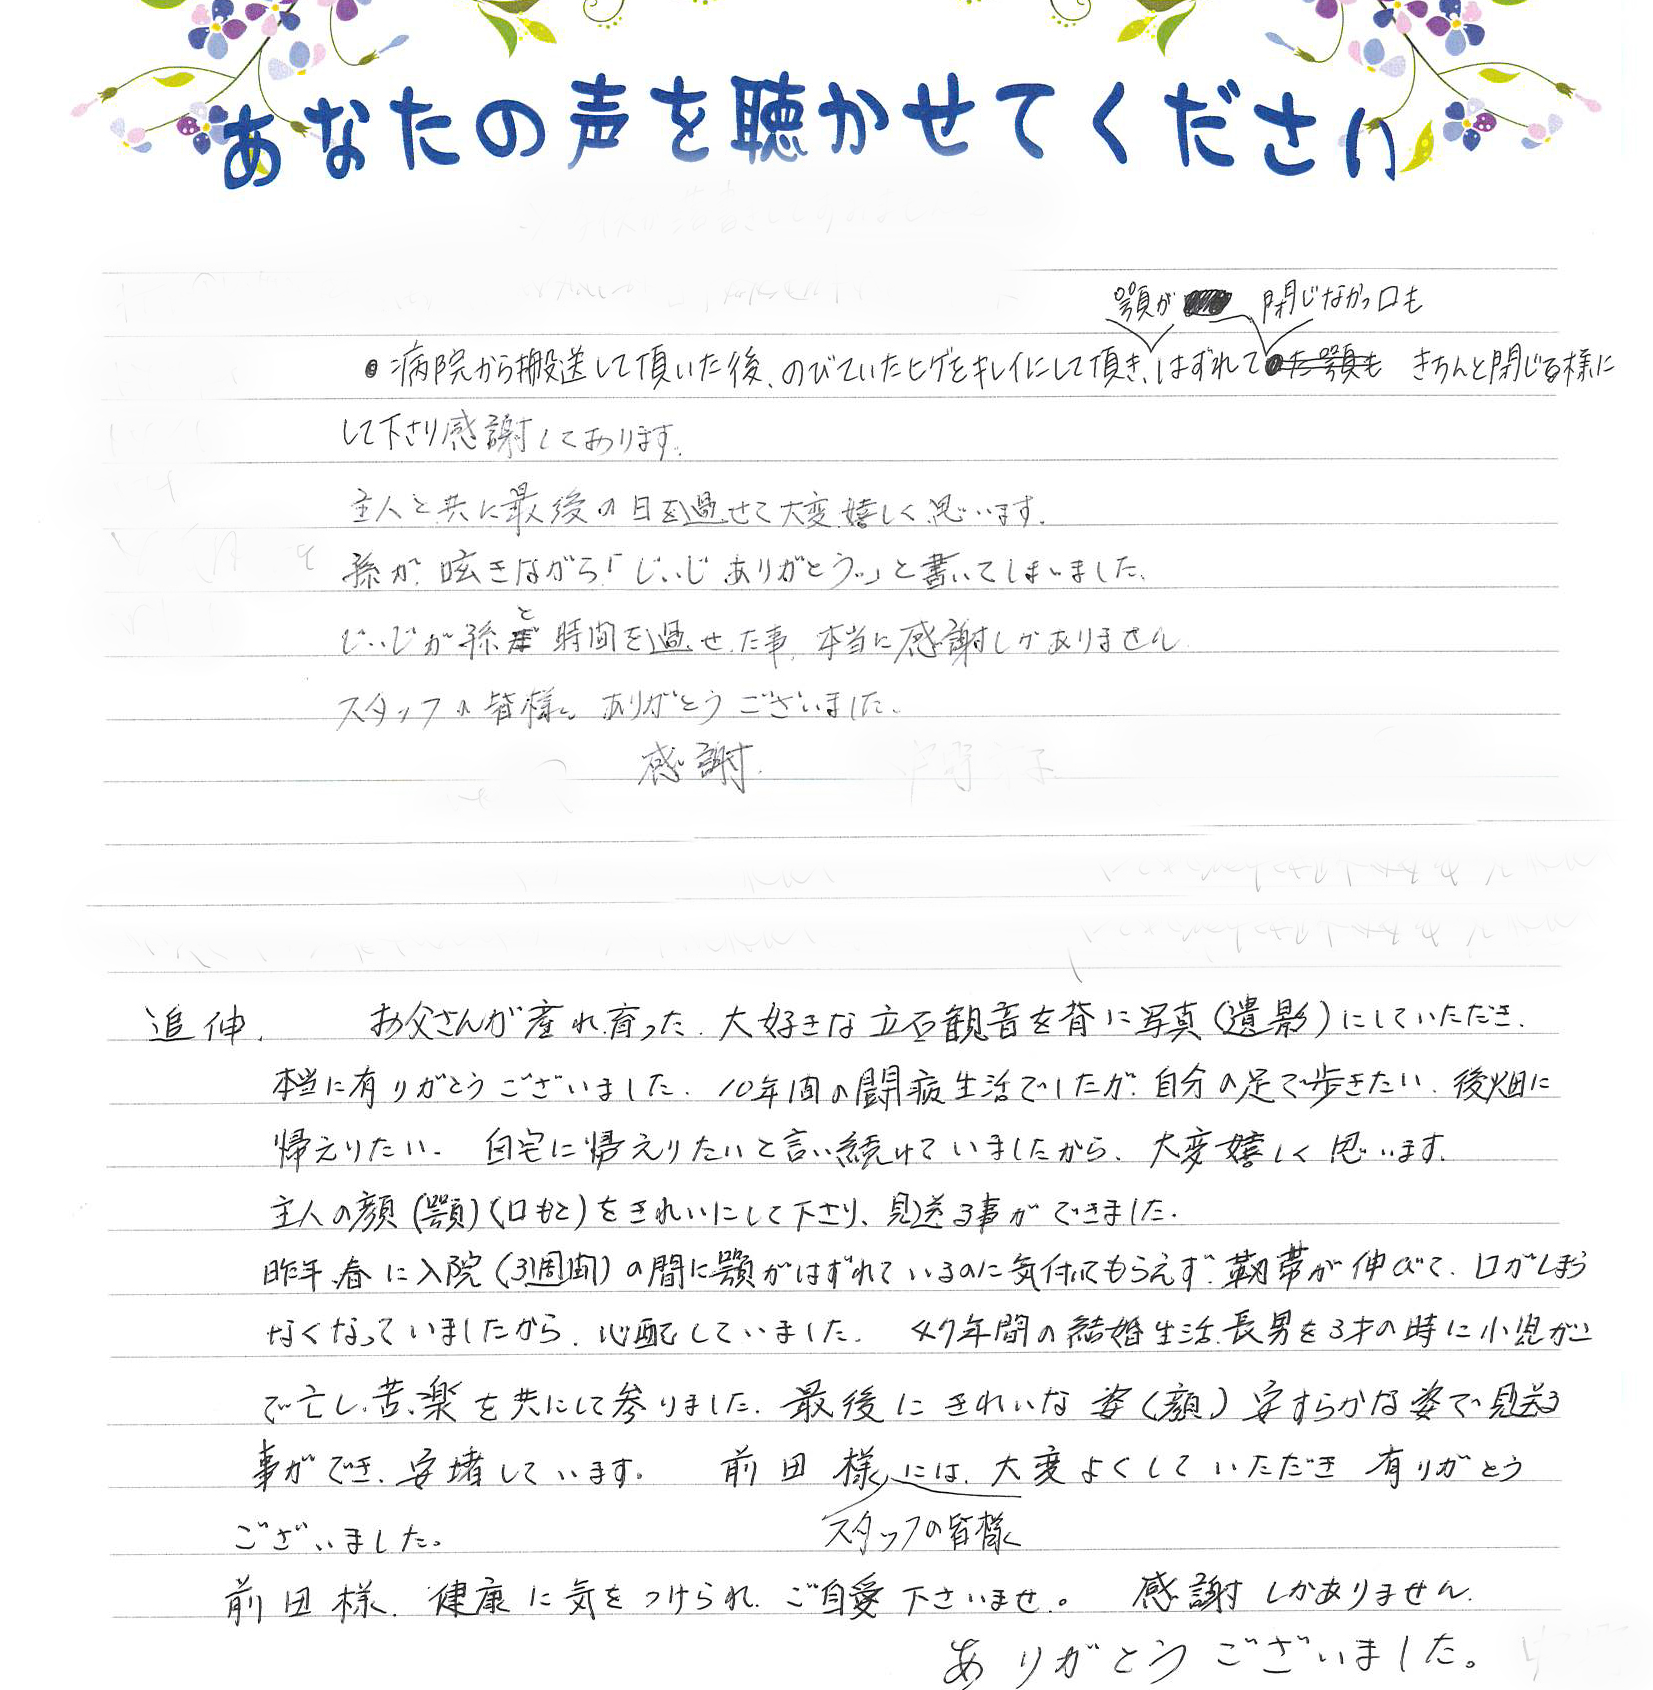 あなたの声を聴かせてください
顎が 閉じなかっ口も
・病院から搬送して頂いた後、のびていたヒゲをキレイにして頂き、はずれて た顎も きちんと閉じる様に
して下さり感謝しております。
主人と共に最後の日を過せて大変嬉しく思います。
孫が、呟きながら「じいじ ありがとう。」と書いてしまいました、
じいじが孫と時間を過せた事、本当に感謝しかありません
スタッフの皆様、ありがとうございました。
感謝.
追伸. お父さんが産れ育った、大好きな立石観音を背に写真(遺影)にしていただき、
本当に有りがとうございました. 10年間の闘病生活でしたが、自分の足で歩きたい、後畑に
帰えりたい、自宅に帰えりたいと言い続けていましたから、大変嬉しく思います.
主人の顔(顎)(口もと)をきれいにして下さり、見送る事ができました.
昨年、春に入院(3週間)の間に顎がはずれているのに気付てもらえず、靭帯が伸びて、口がしまら
なくなっていましたから、心配していました. 47年間の結婚生活、長男を3才の時に小児がん
で亡し、苦、楽を共にして参りました、最後にきれいな姿(顔)安すらかな姿で見送る
事ができ、安堵しています。 前田様には、大変よくしていただき有りがとう
スタッフの皆様
ございました。
前田様、健康に気をつけられ、ご自愛下さいませ。 感謝しかありません.
ありがとうございました。